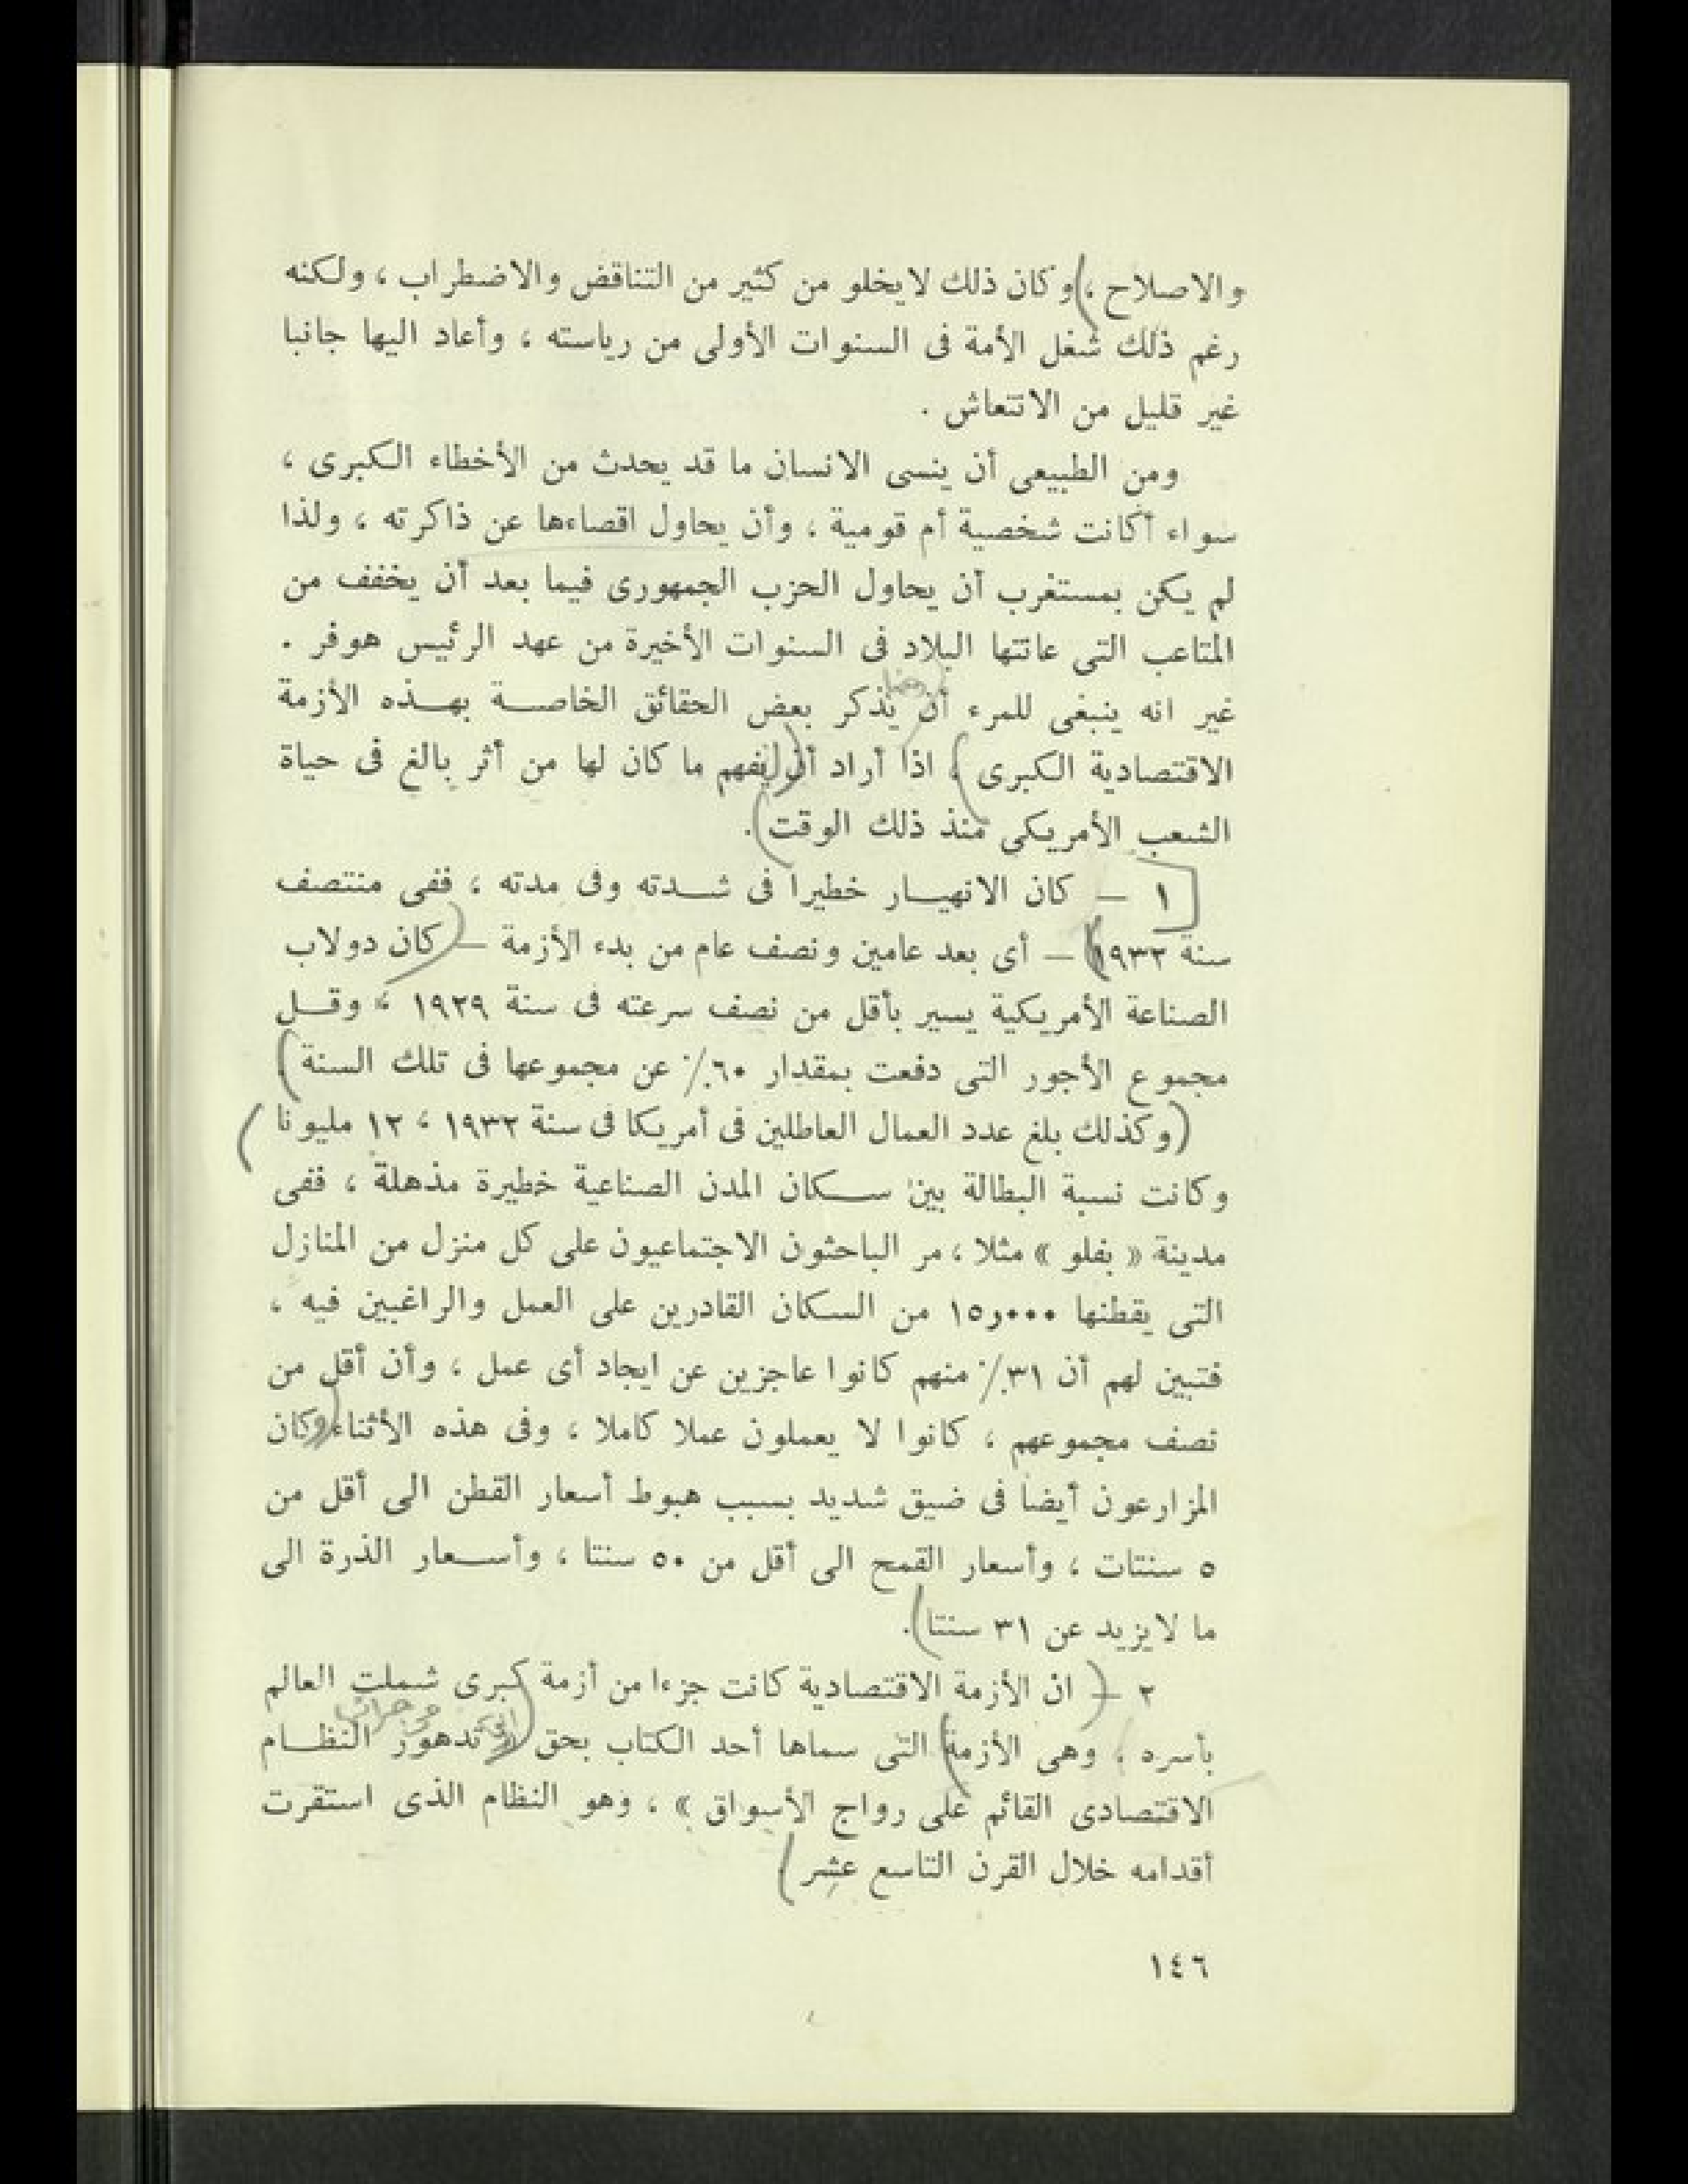 والاصلاح ، وكان ذلك لايخلو من كثير من التناقض والاضطراب ، ولكنه
رغم ذلك شغل الأمة فى السنوات الأولى من رياسته ، وأعاد اليها جانبا
غير قليل من الانتعاش .
ومن الطبيعى أن ينسى الانسان ما قد يحدث من الأخطاء الكبرى ،
سواء أكانت شخصية أم قومية ، وأن يحاول اقصاءها عن ذاكرته ، ولذا
لم يكن بمستغرب أن يحاول الحزب الجمهورى فيما بعد أن يخفف من
المتاعب التى عانتها البلاد فى السنوات الأخيرة من عهد الرئيس هوفر .
غير انه ينبغى للمرء أن يذكر بعض الحقائق الخاصة بهذه الأزمة
الاقتصادية الكبرى ، اذا أراد أن يفهم ما كان لها من أثر بالغ فى حياة
الشعب الأمريكى منذ ذلك الوقت .
١ — كان الانهيار خطيرا فى شدته وفى مدته ، ففى منتصف
سنة ١٩٣٢ — أى بعد عامين ونصف عام من بدء الأزمة — كان دولاب
الصناعة الأمريكية يسير بأقل من نصف سرعته فى سنة ١٩٢٩ ، وقل
مجموع الأجور التى دفعت بمقدار ٦٠٪ عن مجموعها فى تلك السنة
وكذلك بلغ عدد العمال العاطلين فى أمريكا فى سنة ١٩٣٢ ، ١٢ مليونا
وكانت نسبة البطالة بين سكان المدن الصناعية خطيرة مذهلة ، ففى
مدينة « بفلو » مثلا ، مر الباحثون الاجتماعيون على كل منزل من المنازل
التى يقطنها ١٥٫٠٠٠ من السكان القادرين على العمل والراغبين فيه ،
فتبين لهم أن ٣١٪ منهم كانوا عاجزين عن ايجاد أى عمل ، وأن أقل من
نصف مجموعهم ، كانوا لا يعملون عملا كاملا ، وفى هذه الأثناء وكان
المزارعون أيضا فى ضيق شديد بسبب هبوط أسعار القطن الى أقل من
٥ سنتات ، وأسعار القمح الى أقل من ٥٠ سنتا ، وأسعار الذرة الى
ما لايزيد عن ٣١ سنتا .
٢ — ان الأزمة الاقتصادية كانت جزءا من أزمة كبرى شملت العالم
بأسره ، وهى الأزمة التى سماها أحد الكتاب بحق تدهور النظام
الاقتصادى القائم على رواج الأسواق » ، وهو النظام الذى استقرت
أقدامه خلال القرن التاسع عشر
١٤٦